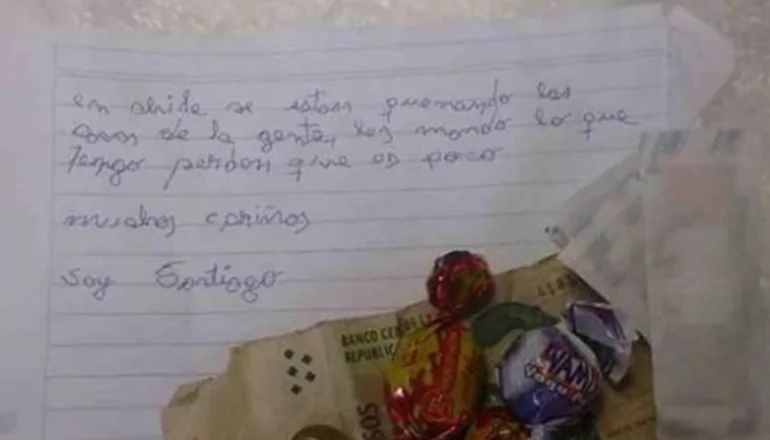 en chile se estan quemando las
casas de la gente, les mando lo que
tengo perdon que es poco
muchos cariños
soy Santiago
BANCO CENTRAL
REPUBLIC
SOS
WAMI